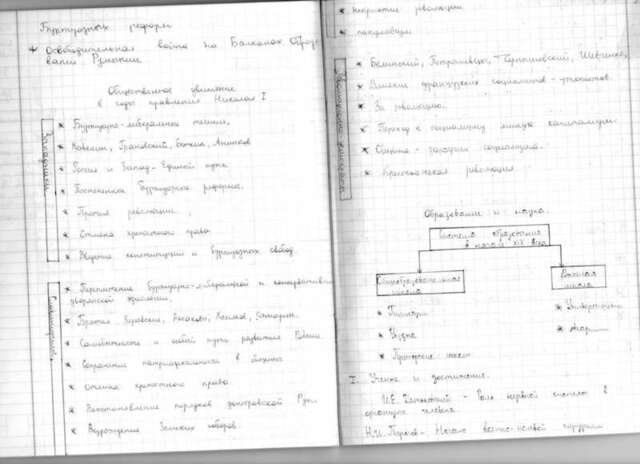 Буржуазных реформ
* Освободительная война на Балканах. Образо
вание Румынии.
Общественное движение
в годы правления Николая I
Западники
* Буржуазно-либеральное течение,
* Кавелин, Грановский, Боткин, Анненков
* Россия и Запад - Единый путь
* Постепенные буржуазные реформы.
* Против революции,
* Отмена крепостного права
* Введение конституции и буржуазных свобод.
Славянофилы
* Переплетение буржуазно-либеральной и консервативно
дворянской идеологии.
* Братья Киреевские, Аксаковы, Хомяков, Самарин.
* Самобытность и особый путь развития России
* Сохранение патриархальности в общине
* отмена крепостного права
* Восстановление порядков допетровской Руси
* Возрождение Земских соборов
* неприятие революции
* панславизм
* Белинский, Петрашевцы, Чернышевский, Шевченко,
* Влияние французских социалистов-утопистов.
* За революцию.
* Переход к социализму минуя капитализм.
* Община - зародыш социализма.
* Крестьянская революция
Образование и наука.
Система образования
в начале XIX века
Общеобразовательная
школа
* Гимназии
* Уездные
* Приходские
Высшая
школа
* Университеты
I. Ученые и достижения.
И.Е. Дядьковский - Роль нервной системы в
организме человека.
Н.И. Пирогов - Начало военно-полевой хирургии